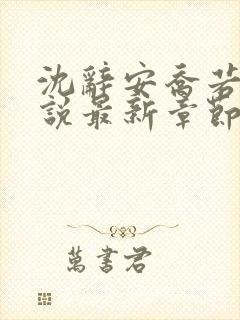 沈辭安喬若
說最新章節
萬書君